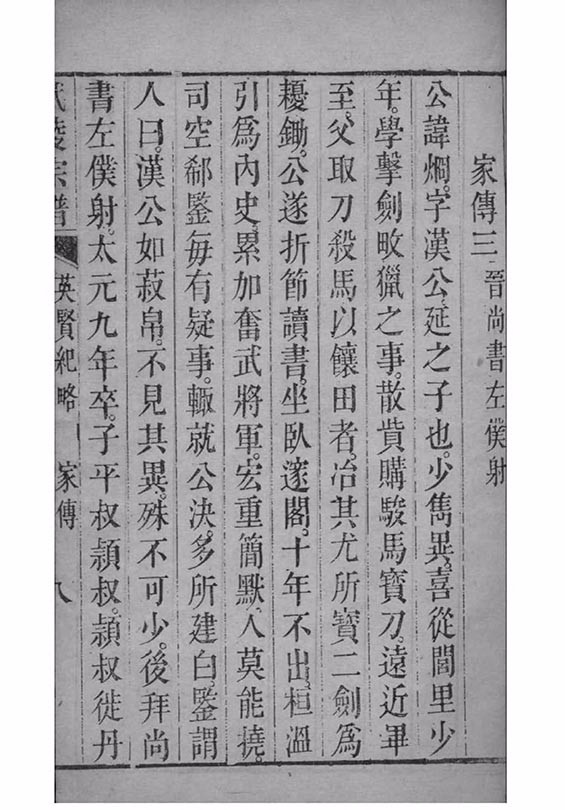 家傳三 晉尚書左僕射
公諱烱。字漢公。延之子也。少雋異。喜從閭里少
年。學擊劍畋獵之事。散貲購駿馬寶刀。遠近畢
至。父取刀殺馬以饟田者。冶其尤所寶二劍爲
耰鋤。公遂折節讀書。坐臥邃閣。十年不出。桓溫
引爲內史。累加奮武將軍。宏重簡默。人莫能撓。
司空郗鑒每有疑事。輙就公決。多所建白。鑒謂
人曰。漢公如菽帛。不見其異。殊不可少。後拜尚
書左僕射。太元九年卒。子平叔頴叔。頴叔徙丹
陵宗譜 英賢紀略 家傳 八